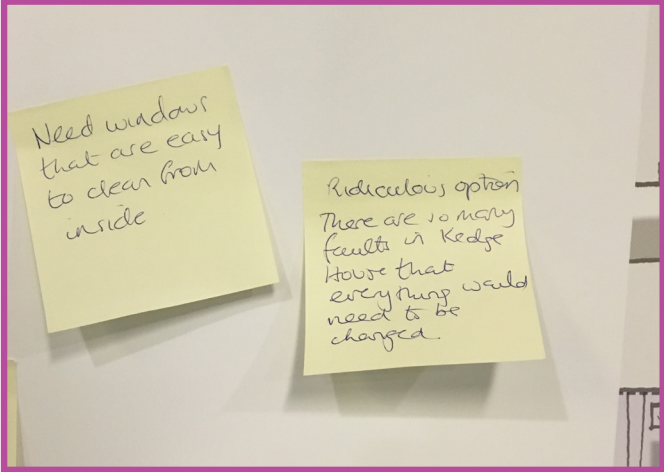 Need windows
that are easy
to clean from
inside
Ridiculous option
There are so many
faults in Kedge
House that
everything would
need to be
changed.